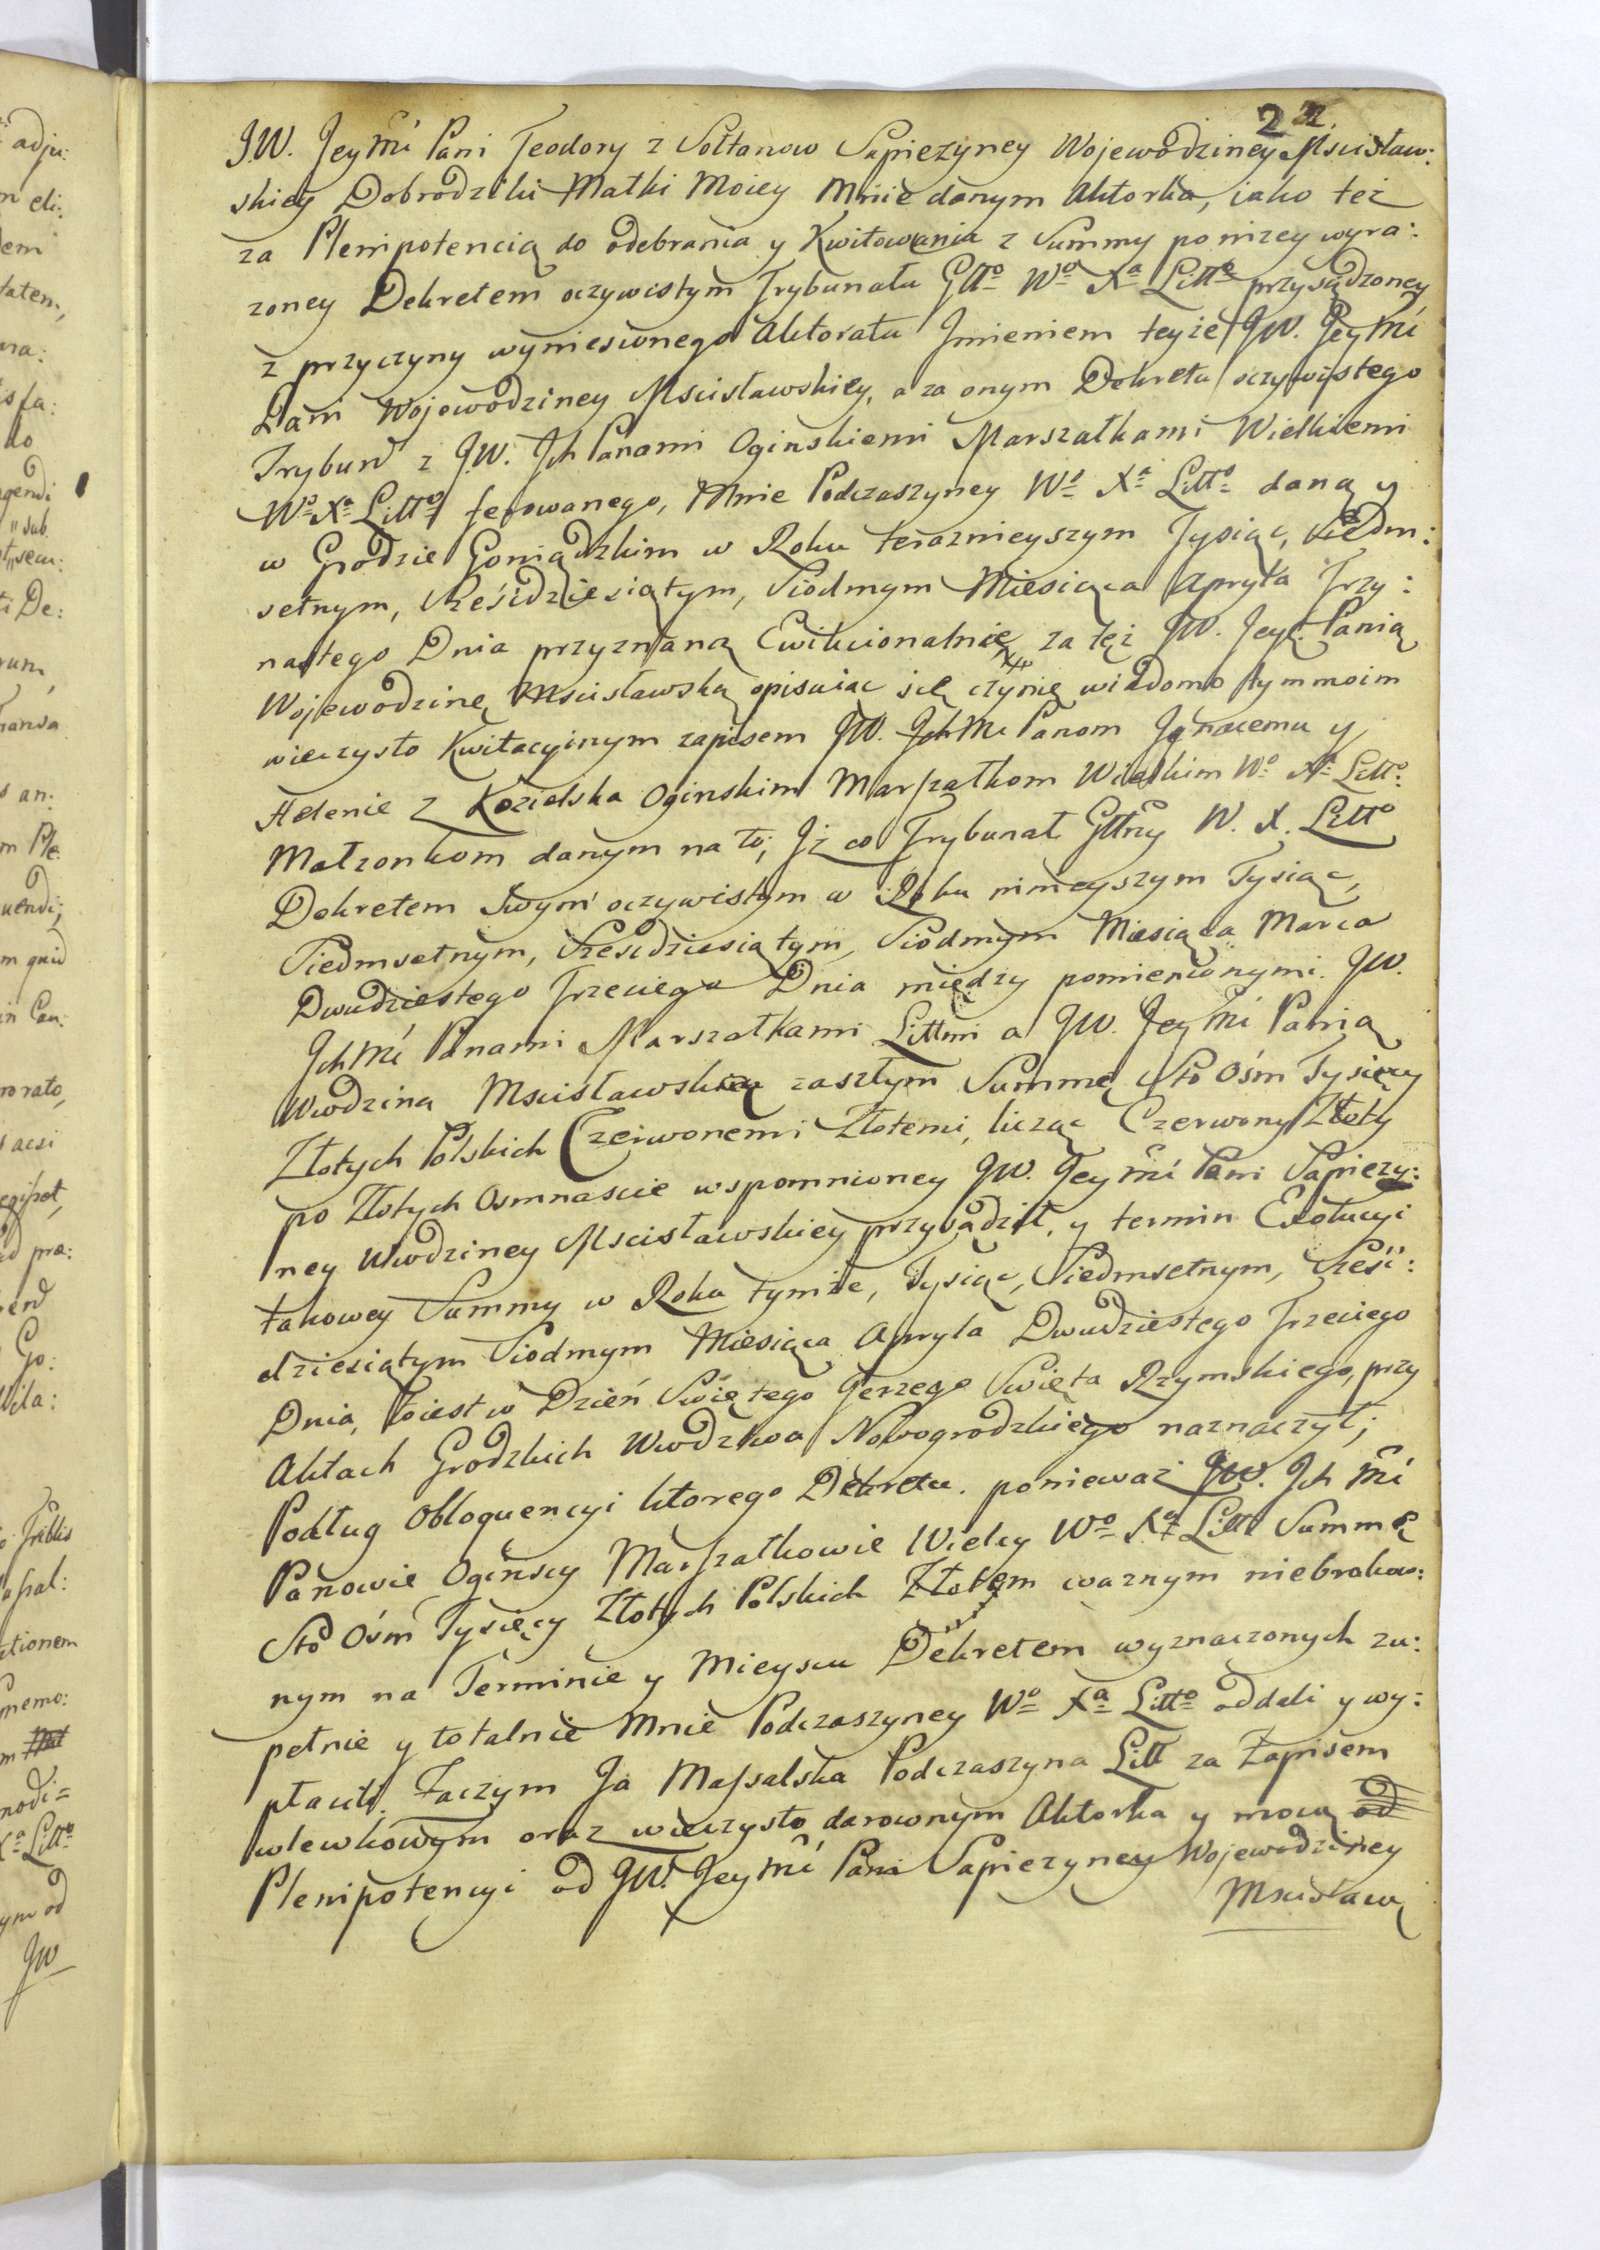 22.
JW. Jey Mći Pani Teodory z Sołtanow Sapiezyney Wojewodziney Mscisław:
skiey Dobrodziki Matki Moiey Mnie danym Aktorka, iako też
za Plenipotencią do odebrania y Kwitowania z Summy ponizey wyra:
zoney Dekretem oczywistym Trybunału Głł° W° Xa Litt° przysądzoney
z przyczyny wyniesionego Aktoratu Jmieniem teyże JW. Jey Mći
Pani Wojewodziney Mscisławskiey, a za onym Dekretu oczywistego
Trybun z JW. Ich Panami Oginskiemi Marszałkami Wielkiemi
W° Xa Litt° ferowanego, Mnie Podczaszyney W° Xa Litt° daną y
w Grodzie Goniądzkim w Roku terazнieyszym Tysiąc, siedm:
setnym, Sześćdziesiątym, Siodmym Miesiąca Apryla Trzy:
nastego Dnia przyznaną Ewikcionalnie za też JW. Jey Panią
Wojewodzinę Mscisławską opisuiac się czynię wiadomo tym moim
wieczysto Kwitacyinym zapisem JW. Ich Mć Panom Jgnacemu y
Helenie z Kozielska Oginskim Marszałkom Wielkim W° Xa Litt°
Małzonkom danym na to, Jż co Trybunał Głłny W. X. Litt°
Dekretem swym oczywistym w Roku ninieyszym Tysiąc,
Siedmsetnym, Sześćdziesiątym, Siodmym Miesiąca Marca
Dwudziestego Trzeciego Dnia między pomienionymi JW.
Ich Mć Panami Marszałkami Littmi a JW. Jey Mć Panią
Wwodzina Mscisławską zaszłym Summę Sto Ośm Tysięcy
Złotych Polskich Czerwonemi Złotemi, licząc Czerwony Złoty
po Złotych Osmnascie wspomnioney JW. Jey Mći Pani Sapiezy:
ney Wwodziney Mscisławskiey przysądził, y termin Exolucyi
takowey Summy w Roku tymże, Tysiąc, Siedmsetnym, Sześć:
dziesiątym Siodmym Miesiąca Apryla Dwudziestego Trzeciego
Dnia, toiest w Dzień Swiętego Jerzego Swięta Rzymskiego, przy
Aktach Grodzkich Wwodztwa Nowogrodzkiego naznaczył;
Podług Obloquencyi ktorego Dekretu. ponieważ JW. Ich Mć
Panowie Oginscy Marszałkowie Wielcy W° Xa Litt Summę
Sto Ośm Tysięcy Złotych Polskich Złotem waznym niebrakow:
nym na Terminie y Mieyscu Dekretem wyznaczonych zu:
pełnie y totalnie Mnie Podczaszyney W° Xa Litt° oddali y wy:
płacili. Zaczym Ja Massalska Podczaszyna Litt za Zapisem
wlewkowym oraz wieczysto darownym Aktorka y mocą od
Plenipotencyi od JW. Jey Mć Pani Sapiezyney Wojewodziney
Mscisław